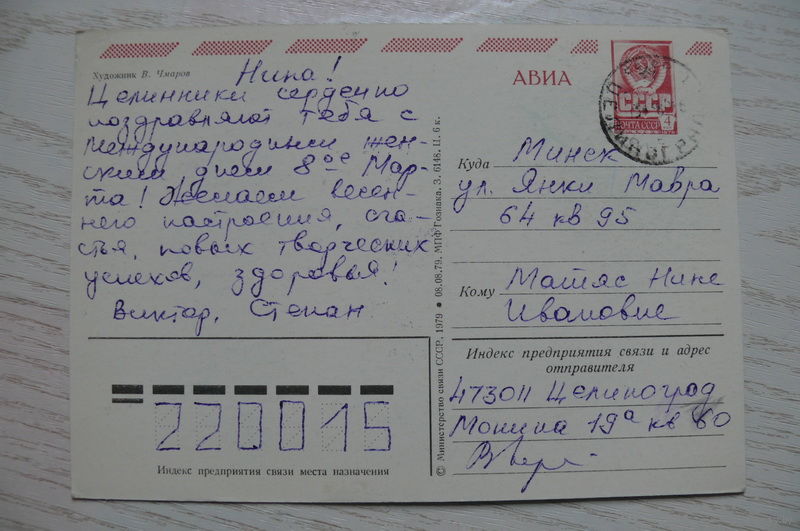 Художник В. Чмаров
Нина!
Целинники сердечно
поздравляют тебя с
международным жен-
ским днем 8ое Мар-
та! Желаем весен-
него настроения, сча-
стья, новых творческих
успехов, здоровья!
Виктор, Степан
АВИА
СССР
ПОЧТА СССР
4
Куда Минск
ул. Янки Мавра
64 кв 95
Кому Матяс Нине
Ивановне
Индекс предприятия связи и адрес
отправителя
473011 Целиноград
Монина 19а кв 60
220015
Индекс предприятия связи места назначения
© Министерство связи СССР, 1979 • 08.08.79. МПФ Гознака. З. 6148. Ц. 6 к.